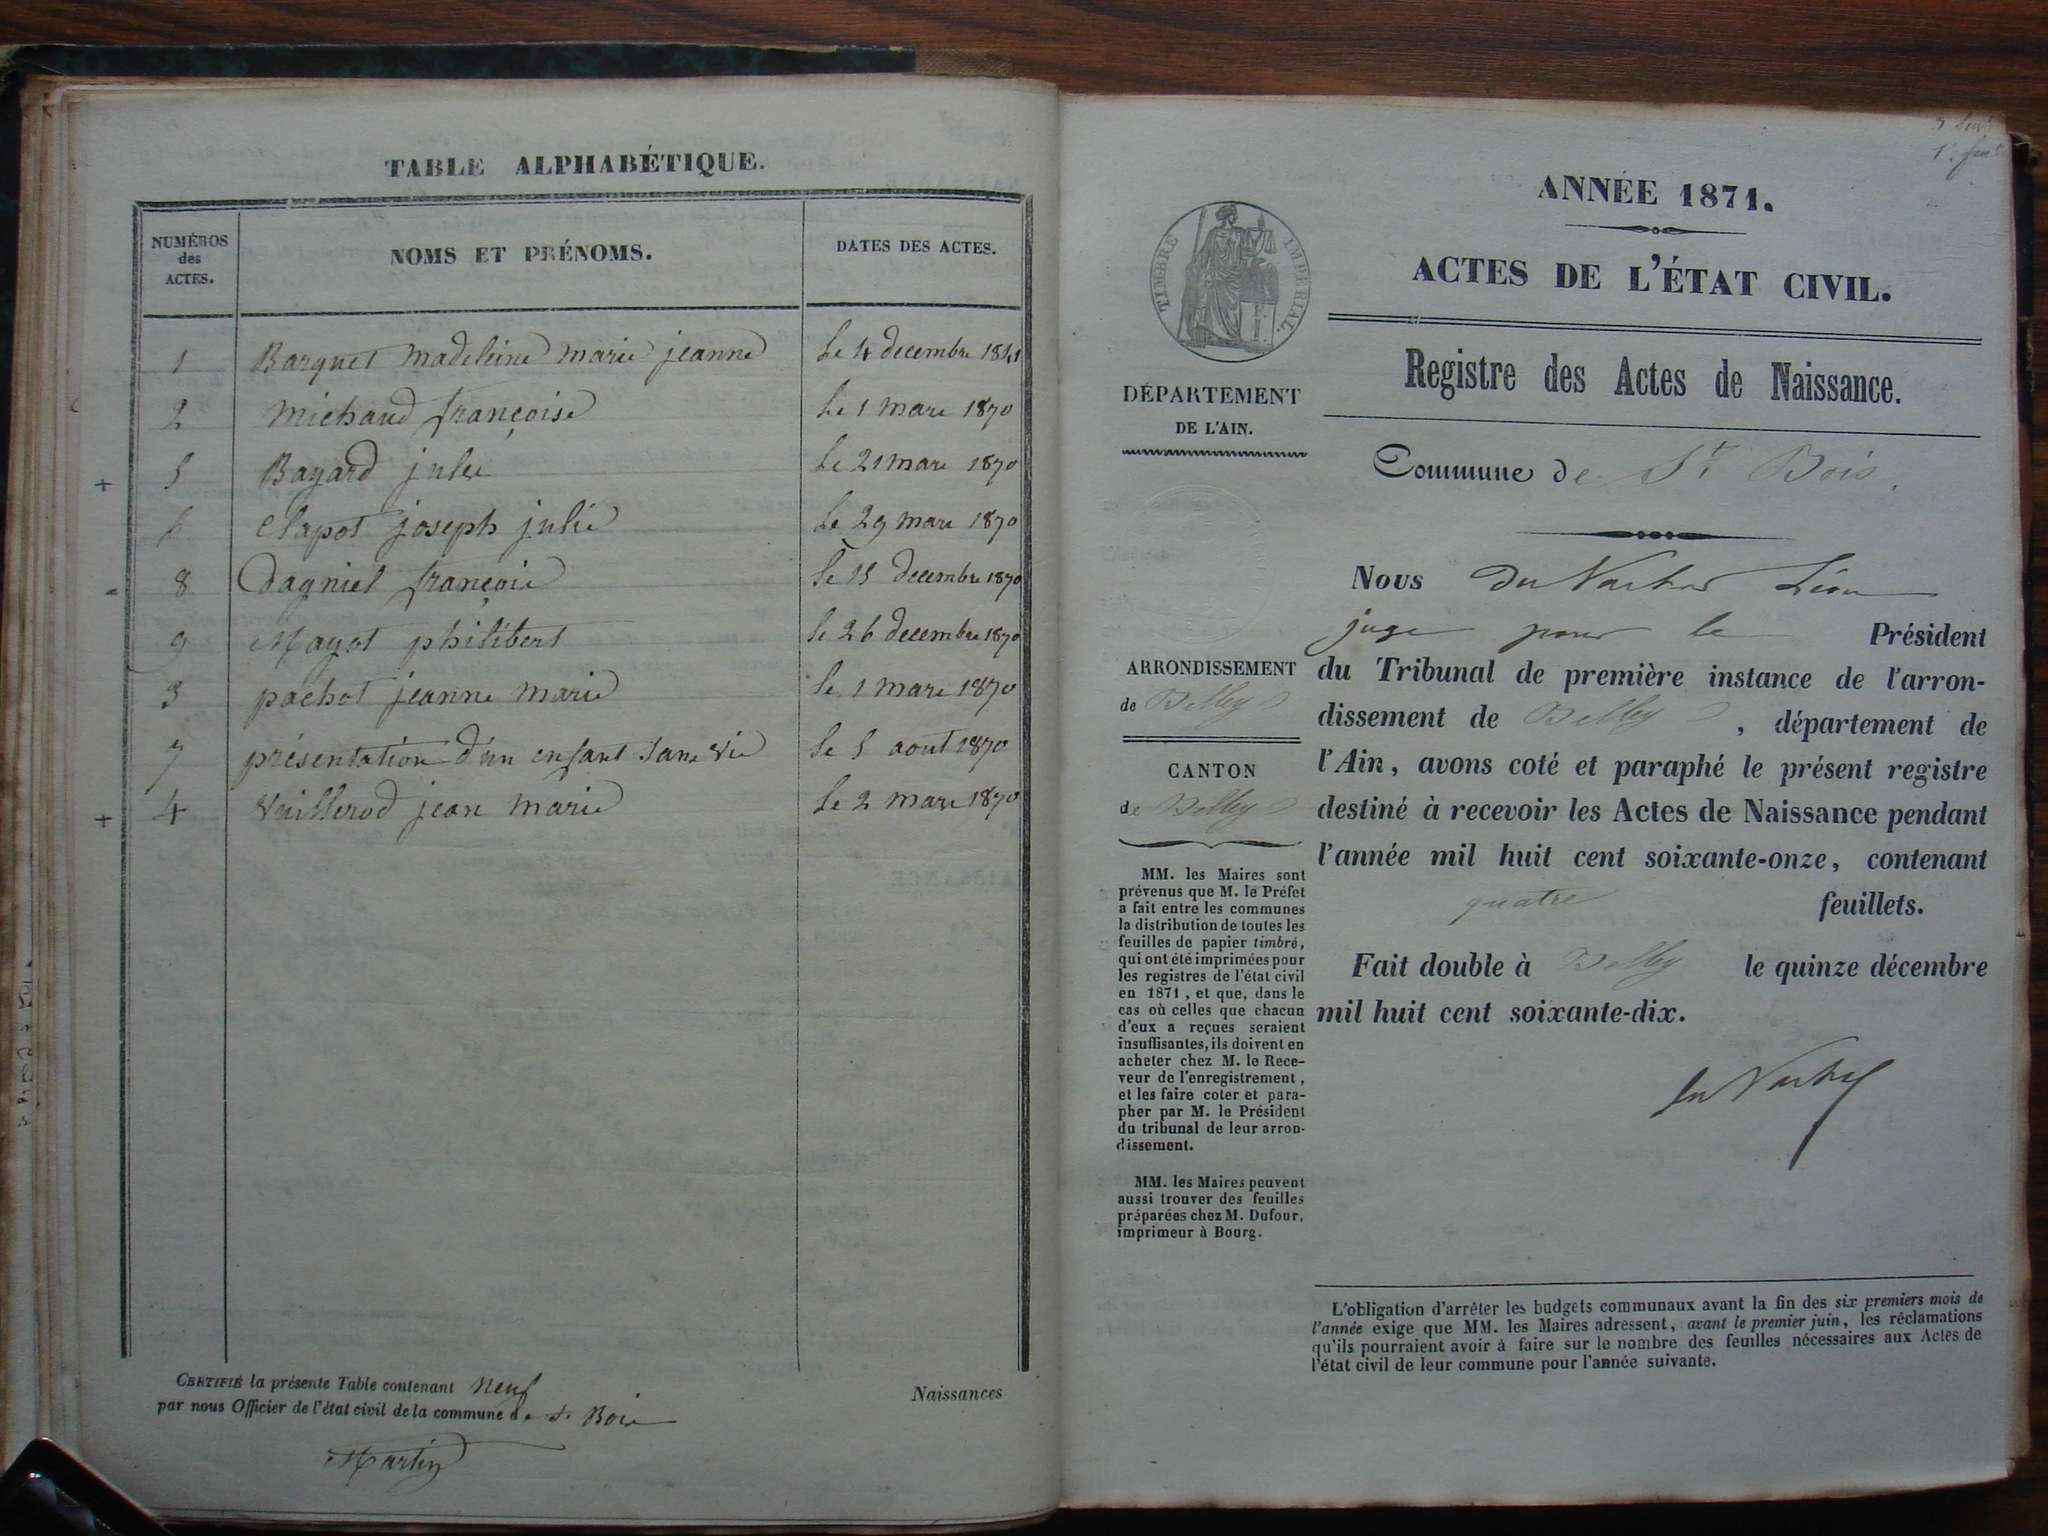 TABLE ALPHABÉTIQUE.
NUMÉROS des ACTES. NOMS ET PRÉNOMS. DATES DES ACTES.
1 Barquet madeleine marie jeanne Le 4 decembre 1841
2 michaud françoise Le 1 mars 1870
5 Bayard julie Le 21 mars 1870
6 Clapot joseph julie Le 29 mars 1870
8 Dagniel françois Le 15 decembre 1870
9 Mayot philibert le 26 decembre 1870
3 pochot jeanne marie le 1 mars 1870
7 présentation d'un enfant sans vie le 5 aout 1870
4 Vuillerod jean marie Le 2 mars 1870
CERTIFIÉ la présente Table contenant neuf Naissances
par nous Officier de l'état civil de la commune de St Bois
Martin
ANNÉE 1871.
ACTES DE L'ÉTAT CIVIL.
TIMBRE IMPÉRIAL.
Registre des Actes de Naissance.
DÉPARTEMENT
DE L'AIN.
Commune de St Bois.
Nous Léon
juge pour le Président
du Tribunal de première instance de l'arron-
dissement de Belley, département de
l'Ain, avons coté et paraphé le présent registre
destiné à recevoir les Actes de Naissance pendant
l'année mil huit cent soixante-onze, contenant
quatre feuillets.
Fait double à Belley le quinze décembre
mil huit cent soixante-dix.
ARRONDISSEMENT
de Belley
CANTON
de Belley
MM. les Maires sont
prévenus que M. le Préfet
a fait entre les communes
la distribution de toutes les
feuilles de papier timbré,
qui ont été imprimées pour
les registres de l'état civil
en 1871, et que, dans le
cas où celles que chacun
d'eux a reçues seraient
insuffisantes, ils doivent en
acheter chez M. le Rece-
veur de l'enregistrement,
et les faire coter et para-
pher par M. le Président
du tribunal de leur arron-
dissement.
MM. les Maires peuvent
aussi trouver des feuilles
préparées chez M. Dufour,
imprimeur à Bourg.
L'obligation d'arrêter les budgets communaux avant la fin des six premiers mois de
l'année exige que MM. les Maires adressent, avant le premier juin, les réclamations
qu'ils pourraient avoir à faire sur le nombre des feuilles nécessaires aux Actes de
l'état civil de leur commune pour l'année suivante.